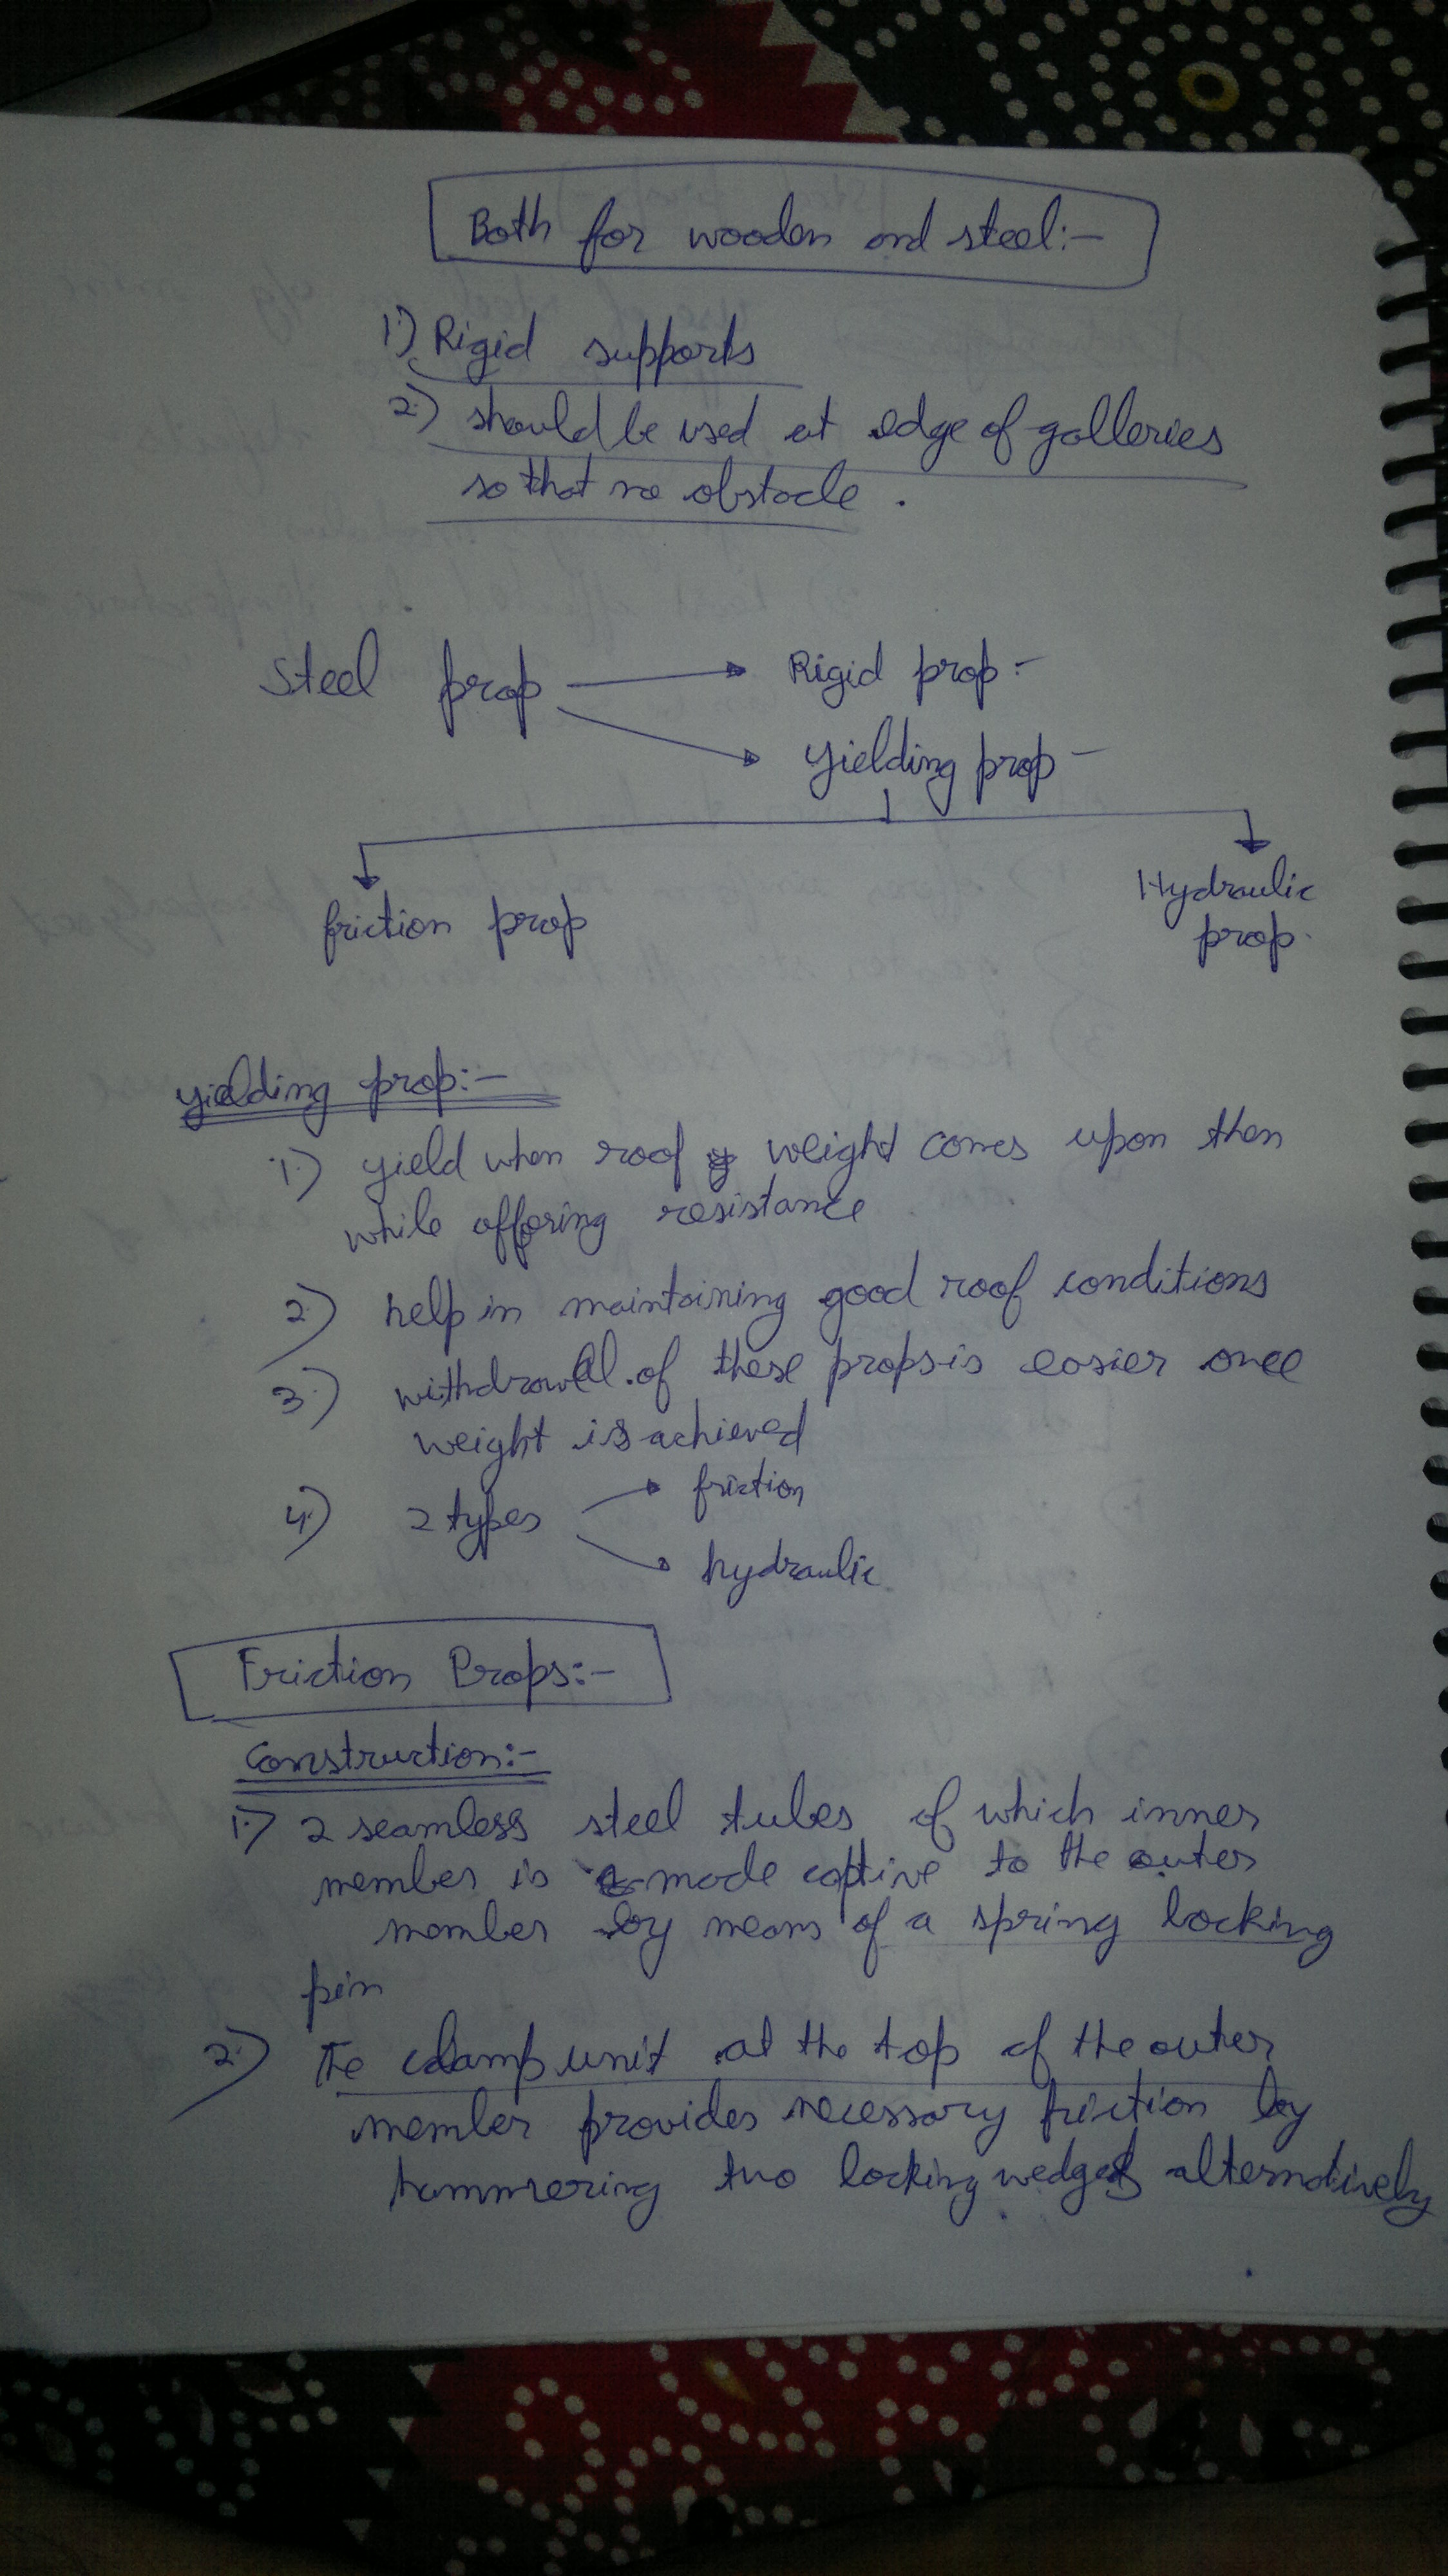 Both for wooden and steel:-
1.) Rigid supports
2.) should be used at edge of galleries
so that no obstacle.
Steel prop
Rigid prop:-
Yielding prop-
friction prop
Hydraulic
prop.
yielding prop:-
1.) yield when roof weight comes upon then
while offering resistance
2.) help in maintaining good roof conditions
3.) withdrawal of these props is easier once
weight is achieved
4.) 2 types
friction
hydraulic
Friction Props:-
Construction:-
1.) 2 seamless steel tubes of which inner
member is made captive to the outer
member by means of a spring locking
pin
2.) The clamp unit at the top of the outer
member provides necessary friction by
hammering two locking wedges alternatively